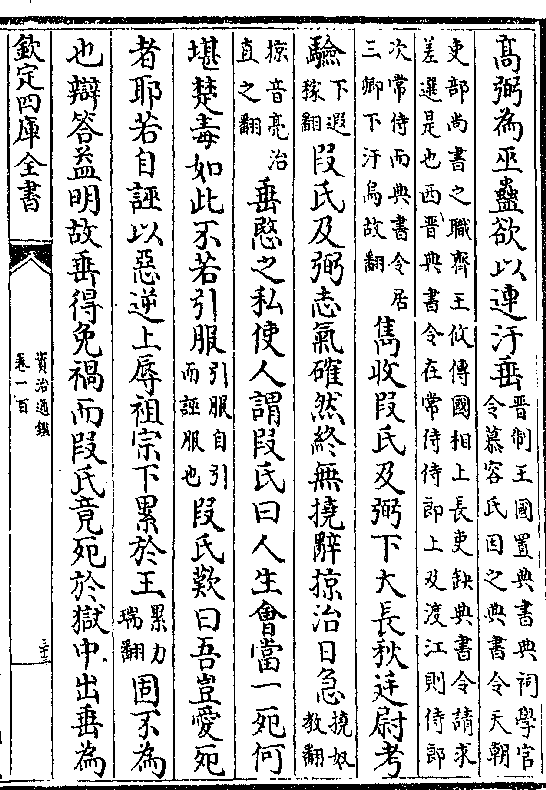 高弼為巫蠱欲以連汙垂晋制王國置典書典祠學官令慕容氏因之典書令天朝
吏部尚書之職齊王攸傳國相上長吏缺典書令請求差選是也西晉典書令在常侍侍郎上及渡江則侍郎
次常侍而典書令居三卿下汙烏故翻雋收叚氏及弼下大長秋廷尉考
驗下遐稼翻叚氏及弼志氣確然終無撓辭掠治日急撓奴教翻
掠音亮治直之翻垂愍之私使人謂叚氏曰人生會當一死何
堪楚毒如此不若引服引服自引而誣服也叚氏歎曰吾豈愛死
者耶若自誣以惡逆上辱祖宗下累於王累力瑞翻固不為
也辯答益明故垂得免禍而叚氏竟死於獄中出垂為
欽定四庫全書
資治通鑑
卷一百